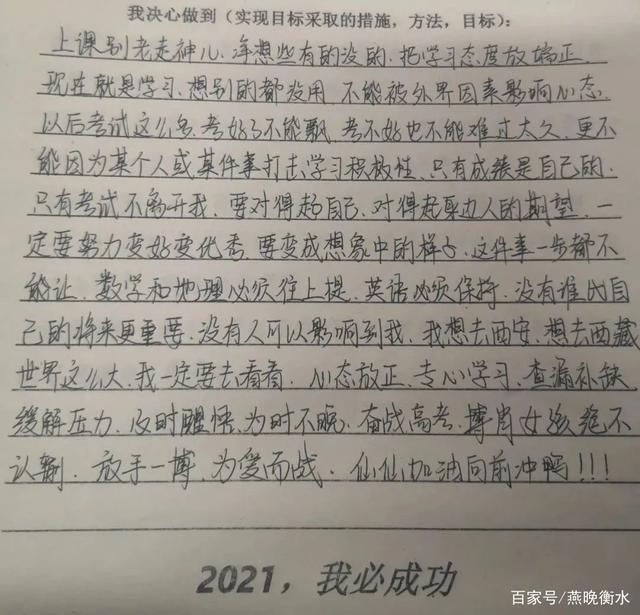 我决心做到（实现目标采取的措施，方法，目标）：
上课别老走神儿、净想些有的没的、把学习态度放端正、
现在就是学习、想别的都没用、不能被外界因素影响心态、
以后考试这么多、考好了不能飘、考不好也不能难过太久、更不
能因为某个人或某件事打击学习积极性、只有成绩是自己的、
只有考试不离开我、要对得起自己、对得起身边人的期望、一
定要努力变好变优秀、要变成想象中的样子、这件事一步都不
能让、数学和地理必须往上提、英语必须保持、没有谁比自
己的将来更重要、没有人可以影响到我、我想去西安、想去西藏
世界这么大、我一定要去看看、心态放正、专心学习、查漏补缺、
缓解压力、及时醒悟、为时不晚、奋战高考、博肖女孩绝不
认输、放手一博、为爱而战、仙仙加油向前冲鸭!!!
2021，我必成功
百家号/燕晚衡水